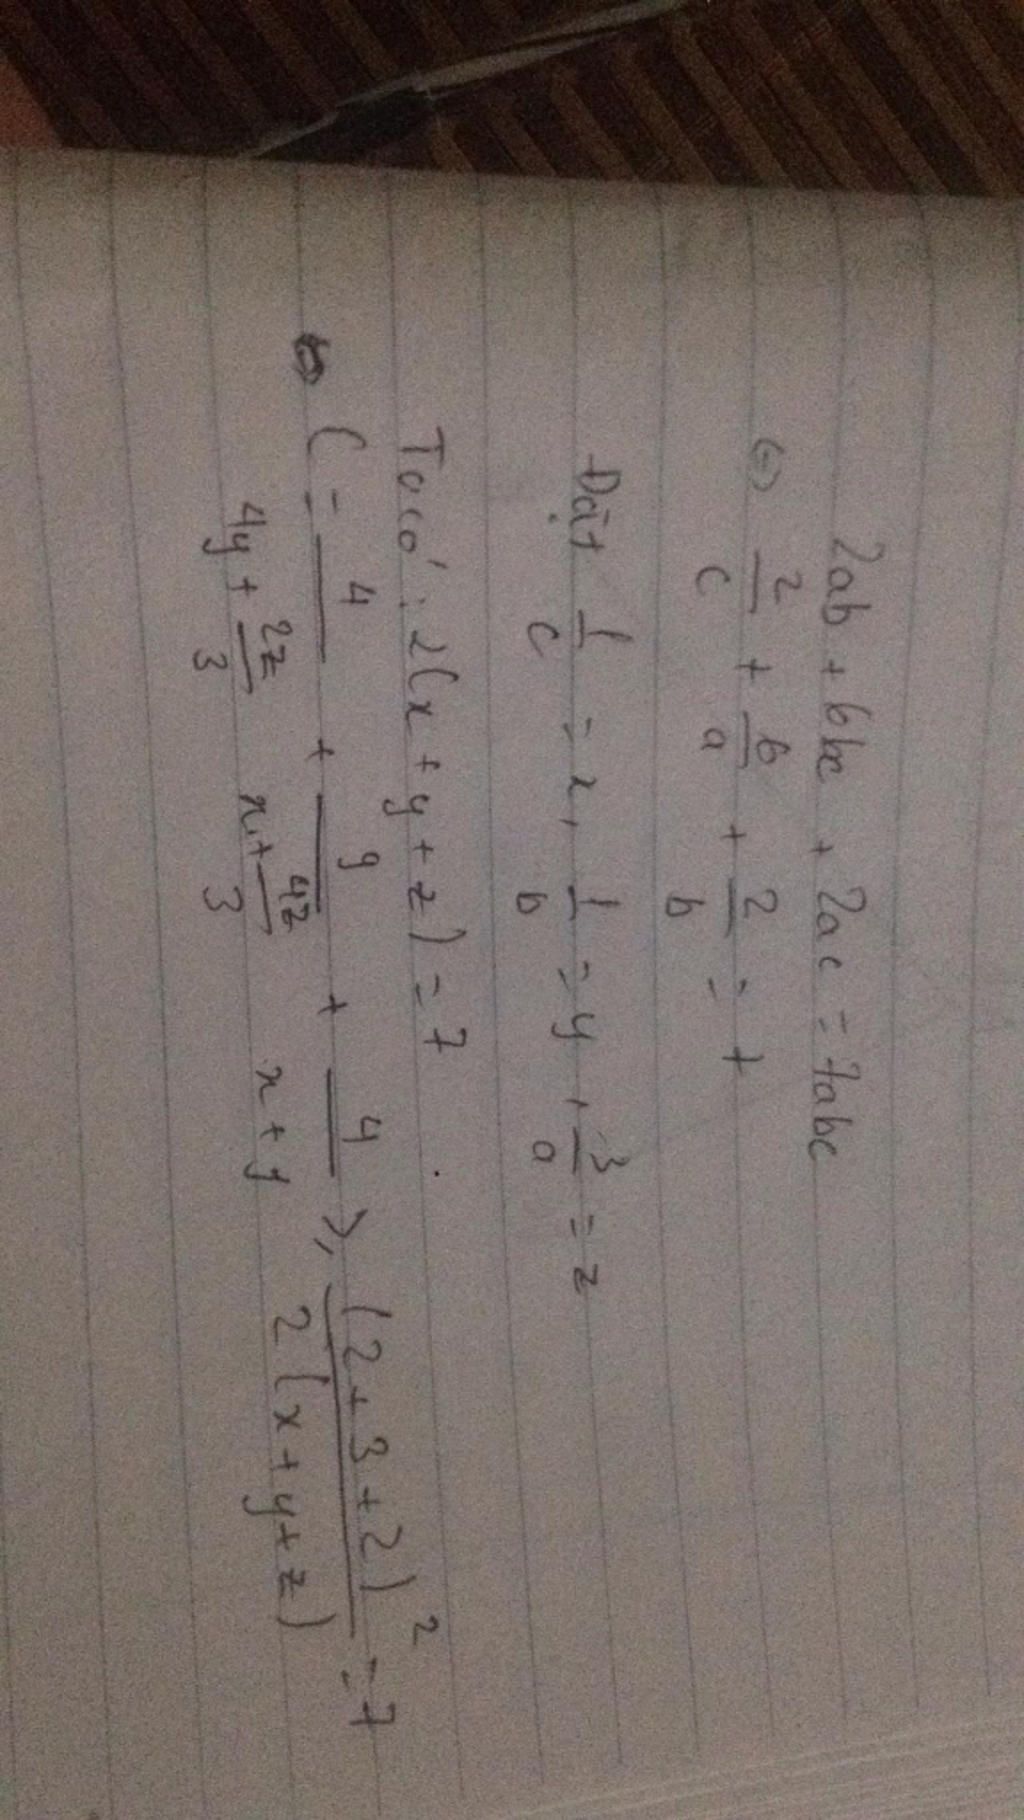 2ab + 6bc + 2ac = 7abc
<=> 2/c + 6/a + 2/b = 7
Đặt 1/c = x, 1/b = y, 3/a = z
Ta có: 2(x + y + z) = 7.
C = 4/(4y + 2z/3) + 9/(x + 4z/3) + 4/(x + y) ≥ (2 + 3 + 2)²/2(x + y + z) = 7